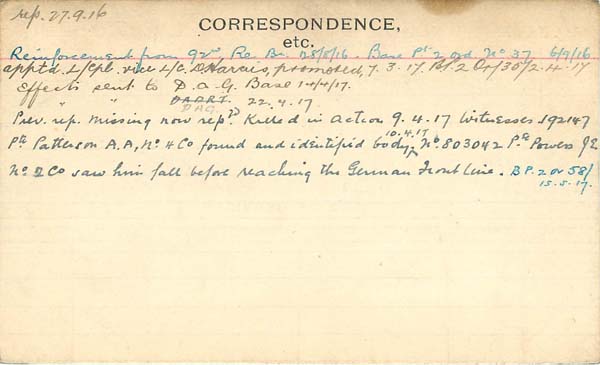 rep. 27.9.16
CORRESPONDENCE,
etc.
Reinforcement from 92nd Re. Bn. 28/8/16. Base Pt 2 ord No 37 6/9/16
apptd. L/Cpl. vice L/C. Harris, promoted, 7.3.17. Bt. 2 Or/30/2.4.17
Effects sent to D.a.G. Base 14/4/17.
" " 22.4.17.
D.A.G.
Prev. rep. missing now repd. Killed in action 9.4.17 Witnesses 192147
Pte Patterson A.A, No 4 Co found and identified body, 10.4.17 No 803042 Pte Powers J.E.
No 2 Co saw him fall before reaching the German Front Line. B P. 2 Or 58/
15.5.17.